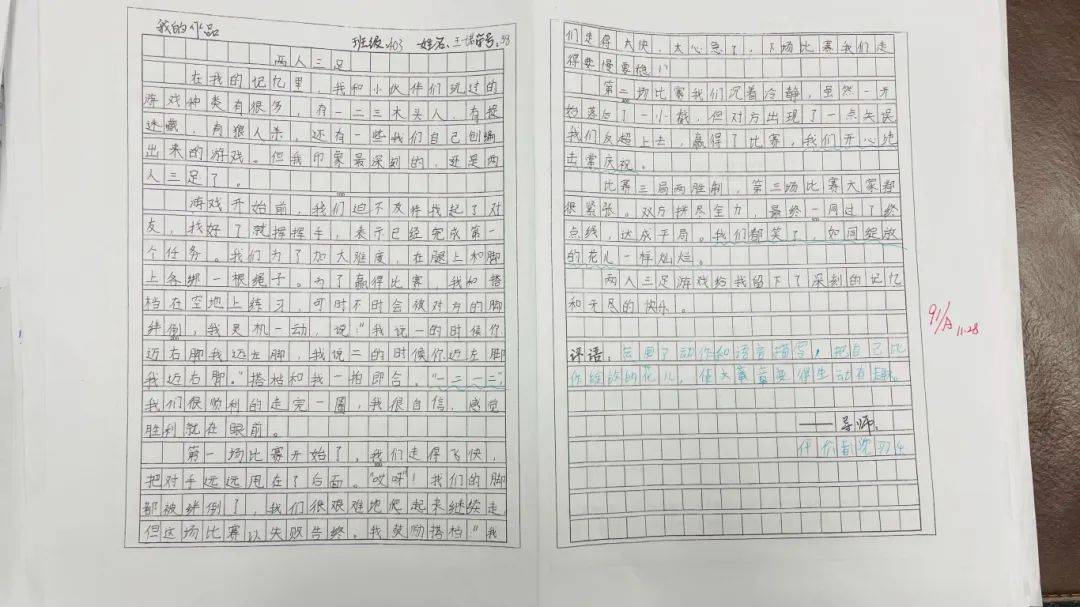 我的作品
班级:403 姓名:王诺 学号:38
两人三足
在我的记忆里，我和小伙伴们玩过的
游戏种类有很多，有一二三木头人，有捉
迷藏，有狼人杀，还有一些我们自己创编
出来的游戏。但我印象最深刻的，还是两
人三足了。
游戏开始前，我们迫不及待找起了对
友，找好了就挥挥手，表示已经完成第一
个任务。我们为了加大难度，在腿上和脚
上各绑一根绳子。为了赢得比赛，我和搭
档在空地上练习，可时不时会被对方的脚
绊倒，我灵机一动，说："我说一的时候你
迈右脚我迈左脚，我说二的时候你迈左脚
我迈右脚。"搭档和我一拍即合。"一二一二"
我们很顺利的走完一圈，我很自信，感觉
胜利就在眼前。
第一场比赛开始了，我们走得飞快，
把对手远远甩在了后面。"哎呀！我们的脚
都被绊倒了，我们很艰难地爬起来继续走，
但这场比赛以失败告终。我鼓励搭档："我
们走得太快，太心急了，下场比赛我们走
得要慢要稳！"
第二场比赛我们沉着冷静，虽然一开
始落后了一小截，但对方出现了一点失误
我们反超上去，赢得了比赛，我们开心地
击掌庆祝。
比赛三局两胜制，第三场比赛大家都
很紧张。双方拼尽全力，最终一同过了终
点线，达成平局。我们都笑了，如同绽放
的花儿一样灿烂。
两人三足游戏给我留下了深刻的记忆
和无尽的快乐。
91/A
11.28
评语：运用了动作和语言描写，把自己比
作绽放的花儿，使文章变得生动有趣。
——导师：
评价者